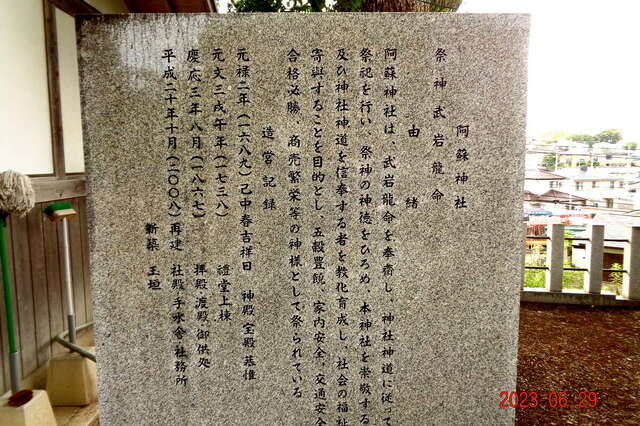 阿蘇神社
祭神 武岩龍命
由緒
阿蘇神社は、武岩龍命を奉斎し、神社神道に従って
祭祀を行い、祭神の神徳をひろめ、本神社を崇敬する
及び神社神道を信奉する者を教化育成し、社会の福祉
寄与することを目的とし、五穀豊饒、家内安全、交通安全
合格必勝、商売繁栄等の神様として祭られている
造営記録
元禄二年(一六八九)己中春吉祥日 神殿宝殿基
元文三戊午年(一七三八) 禮堂上棟
慶応三年八月(一八六七) 拝殿渡殿御供処
平成二十年十月(二〇〇八)再建 社殿手水舎社務所
新築 玉垣
2023.06.29